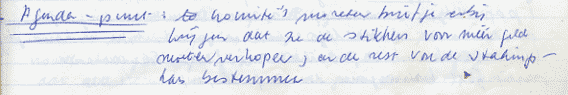 Agenda-punt: to komité's moeten briefje erbij
krijgen dat ze de stikkers voor méér geld
moeten verkopen; en de rest van de stakings-
kas bestemmen